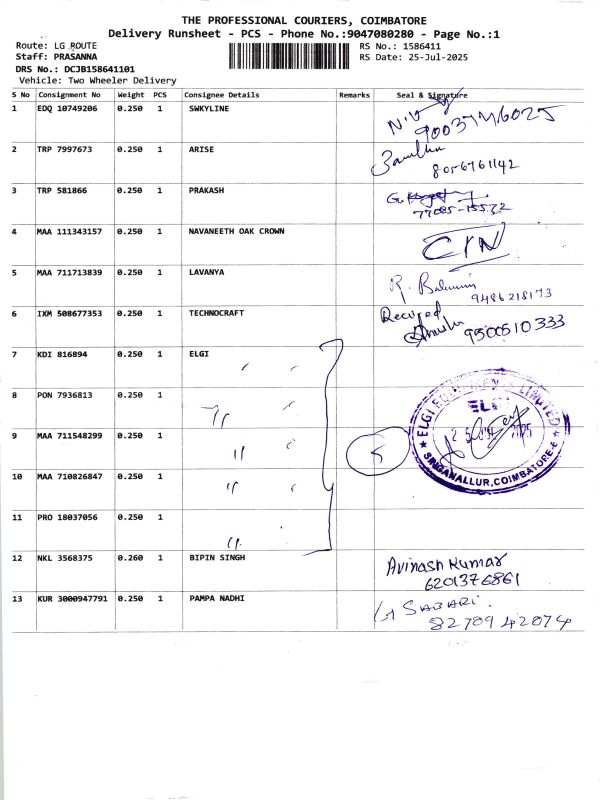 THE PROFESSIONAL COURIERS, COIMBATORE
Delivery Runsheet - PCS - Phone No.:9047080280 - Page No.:1
Route: LG ROUTE
Staff: PRASANNA
DRS No.: DCJB158641101
Vehicle: Two Wheeler Delivery
RS No.: 1586411
RS Date: 25-Jul-2025
S No Consignment No Weight PCS Consignee Details Remarks Seal & Signature
1 EDQ 10749206 0.250 1 SWKYLINE
2 TRP 7997673 0.250 1 ARISE 8056761142
3 TRP 581866 0.250 1 PRAKASH
4 MAA 111343157 0.250 1 NAVANEETH OAK CROWN
5 MAA 711713839 0.250 1 LAVANYA R. 9486218173
6 IXM 508677353 0.250 1 TECHNOCRAFT 9500510333
7 KDI 816894 0.250 1 ELGI
8 PON 7936813 0.250 1
9 MAA 711548299 0.250 1 5
10 MAA 710826847 0.250 1
11 PRO 18037056 0.250 1
ELGI LIMITED
ELGI
2025
SINGANALLUR, COIMBATORE
12 NKL 3568375 0.260 1 BIPIN SINGH Avinash Kumar
6201376861
13 KUR 3000947791 0.250 1 PAMPA NADHI SABARI
8270942074